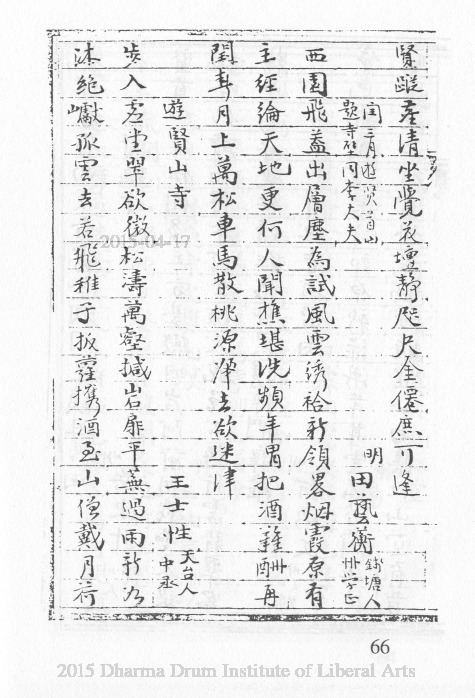 賢蹤產清坐覺花壇靜咫尺金僊庶可逢
閏三月遊賢首山
題寺壁同李大夫
明 田藝蘅
錢塘人
州學正
西園飛蓋出層塵為試風雲綉袷新領畧烟霞原有
主經綸天地更何人聞樵堪洗頻年胃把酒難酬再
閏春月上萬松車馬散桃源洋去欲迷津
遊賢山寺
王士性
天台人
中丞
步入虛堂翠欲微松濤萬壑撼岩扉平蕪過雨新如
沐絕巘孤雲去若飛稚子扳蘿携酒至山僧戴月荷
2015-04-17
66
2015 Dharma Drum Institute of Liberal Arts